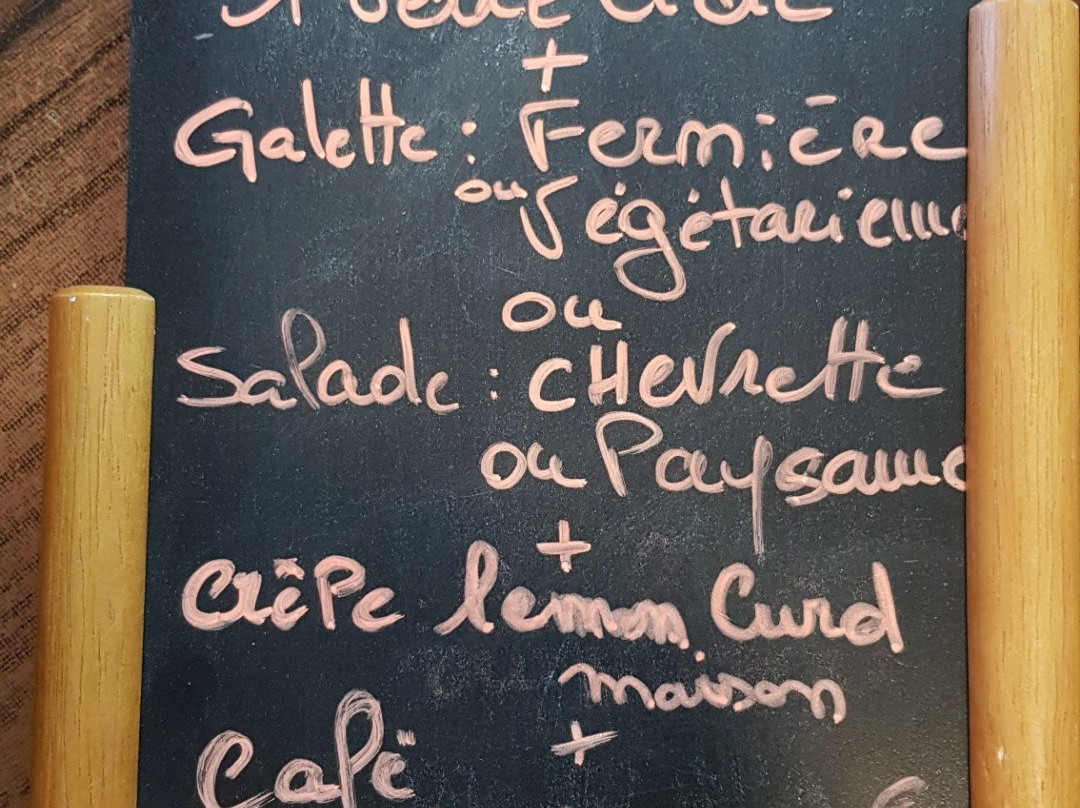 +
Galette : Fermière
ou Végétarienne
ou
Salade : CHEVrette
ou Paysanne
+
Crêpe lemon Curd
maison
+
Café